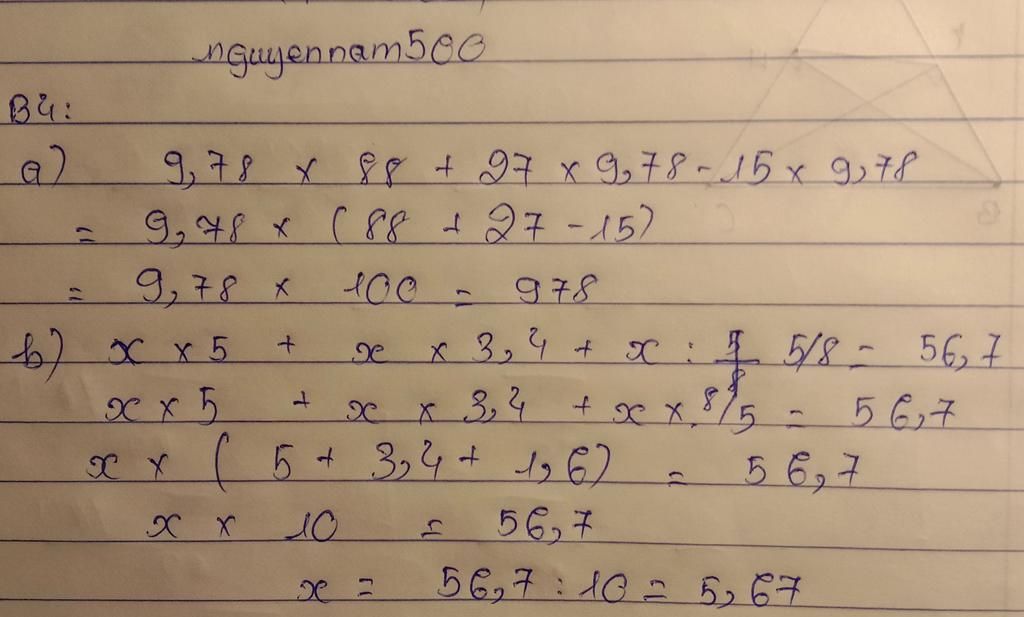 nguyennam500
B4:
a) 9,78 x 88 + 27 x 9,78 - 15 x 9,78
= 9,78 x (88 + 27 - 15)
= 9,78 x 100 = 978
b) x x 5 + x x 3,4 + x : 5/8 = 56,7
x x 5 + x x 3,4 + x x 8/5 = 56,7
x x ( 5 + 3,4 + 1,6) = 56,7
x x 10 = 56,7
x = 56,7 : 10 = 5,67